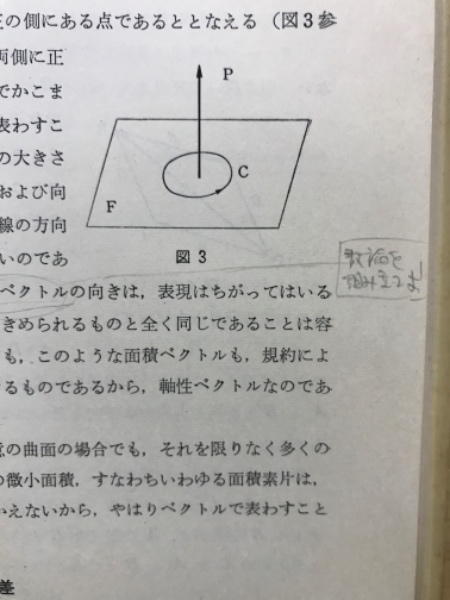 の側にある点であるととなえる（図3参
両側に正
でかこま
表わすこ
の大きさ
および向
線の方向
いのであ
P
C
F
図 3
ベクトルの向きは，表現はちがってはいる
きめられるものと全く同じであることは容
も，このような面積ベクトルも，規約によ
るものであるから，軸性ベクトルなのであ
意の曲面の場合でも，それを限りなく多くの
の微小面積，すなわちいわゆる面積素片は，
かえないから，やはりベクトルで表わすこと
差